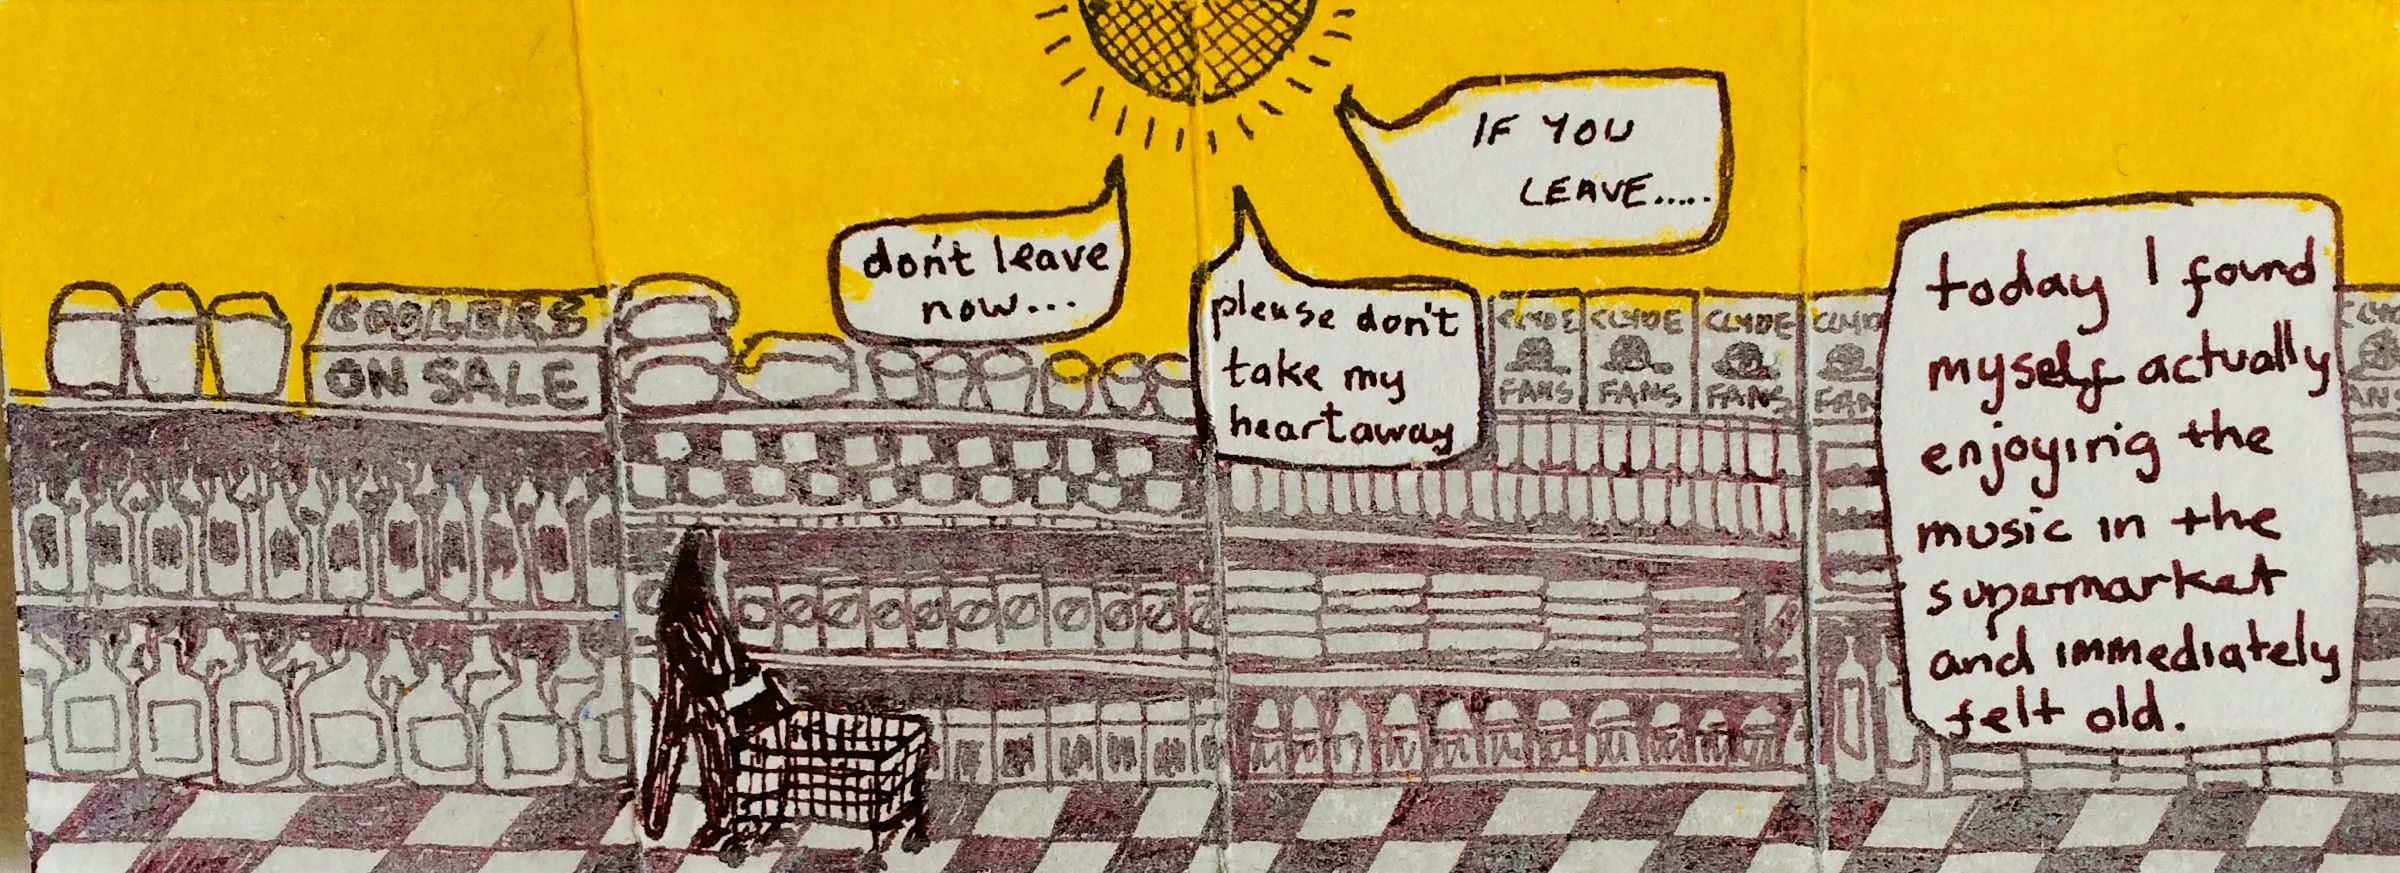 IF YOU
LEAVE.....
don't leave
now...
please don't
take my
heartaway
today I found
myself actually
enjoying the
music in the
supermarket
and immediately
felt old.
COOLERS
ON SALE
CLYDE
FANS
CLYDE
FANS
CLYDE
FANS